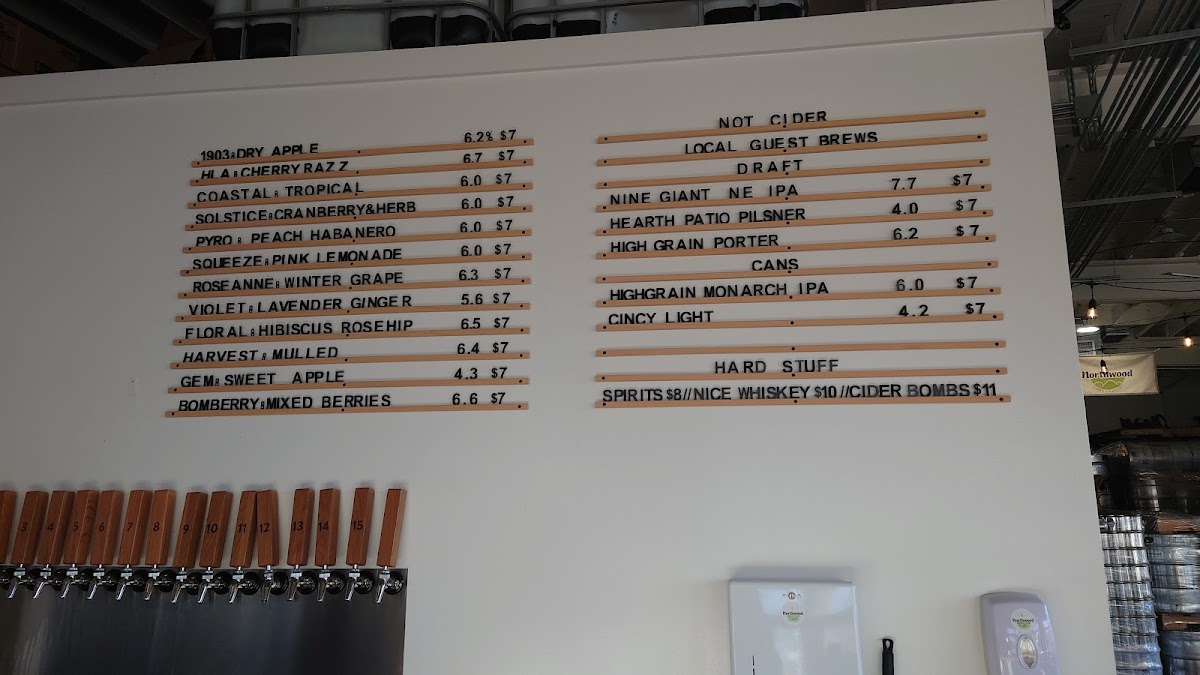 1903 DRY APPLE 6.2% $7
HLA CHERRY RAZZ 6.7 $7
COASTAL TROPICAL 6.0 $7
SOLSTICE CRANBERRY&HERB 6.0 $7
PYRO PEACH HABANERO 6.0 $7
SQUEEZE PINK LEMONADE 6.0 $7
ROSEANNE WINTER GRAPE 6.3 $7
VIOLET LAVENDER GINGER 5.6 $7
FLORAL HIBISCUS ROSEHIP 6.5 $7
HARVEST MULLED 6.4 $7
GEM SWEET APPLE 4.3 $7
BOMBERRY MIXED BERRIES 6.6 $7
NOT CIDER
LOCAL GUEST BREWS
DRAFT
NINE GIANT NE IPA 7.7 $7
HEARTH PATIO PILSNER 4.0 $7
HIGH GRAIN PORTER 6.2 $7
CANS
HIGHGRAIN MONARCH IPA 6.0 $7
CINCY LIGHT 4.2 $7
HARD STUFF
SPIRITS $8//NICE WHISKEY $10//CIDER BOMBS $11
Northwood
3 4 5 6 7 8 9 10 11 12 13 14 15
Northwood
Northwood